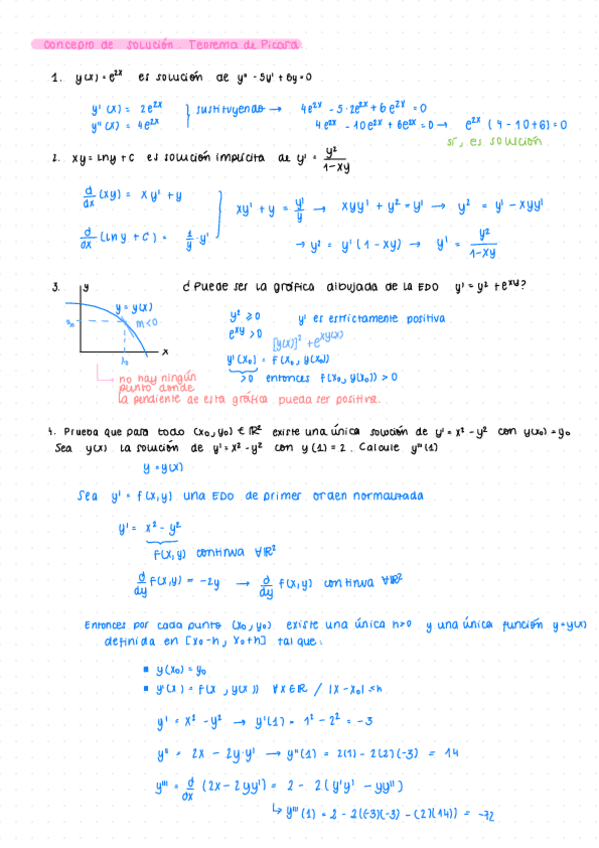 Concepto de solución. Teorema de Picard.
1. y(x) = e^2x es solución de y'' - 5y' + 6y = 0
y'(x) = 2e^2x } sustituyendo → 4e^2x - 5·2e^2x + 6e^2x = 0
y''(x) = 4e^2x 4e^2x - 10e^2x + 6e^2x = 0 → e^2x (4 - 10 + 6) = 0
sí, es solución
2. xy = lny + c es solución implícita de y' = y²/(1-xy)
d/dx (xy) = xy' + y
xy' + y = y'/y → xyy' + y² = y' → y² = y' - xyy'
d/dx (Lny + C) = 1/y · y'
→ y² = y'(1 - xy) → y' = y²/(1-xy)
3. ¿Puede ser la gráfica dibujada de la EDO y' = y² + e^xy?
y
y = y(x)
m<0
x
y² ≥ 0 y' es estrictamente positiva
e^xy > 0
[y(x)]² + e^xy(x)
y'(x₀) = f(x₀, y(x₀))
>0 entonces f(x₀, y(x₀)) > 0
no hay ningún
punto donde
la pendiente de esta gráfica pueda ser positiva.
4. Prueba que para todo (x₀, y₀) ∈ ℝ² existe una única solución de y' = x² - y² con y(x₀) = y₀
Sea y(x) la solución de y' = x² - y² con y(1) = 2. Calcule y'''(1)
y = y(x)
Sea y' = f(x,y) una EDO de primer orden normalizada
y' = x² - y²
f(x,y) continua ∀ℝ²
d/dy f(x,y) = -2y → d/dy f(x,y) continua ∀ℝ²
Entonces por cada punto (x₀, y₀) existe una única h>0 y una única función y=y(x)
definida en [x₀-h, x₀+h] tal que:
▪ y(x₀) = y₀
▪ y'(x) = f(x, y(x)) ∀x∈ℝ / |x - x₀| ≤ h
y' = x² - y² → y'(1) = 1² - 2² = -3
y'' = 2x - 2y·y' → y''(1) = 2(1) - 2(2)(-3) = 14
y''' = d/dx (2x - 2yy') = 2 - 2(y'y' - yy'')
↳ y'''(1) = 2 - 2((-3)(-3) - (2)(14)) = -72